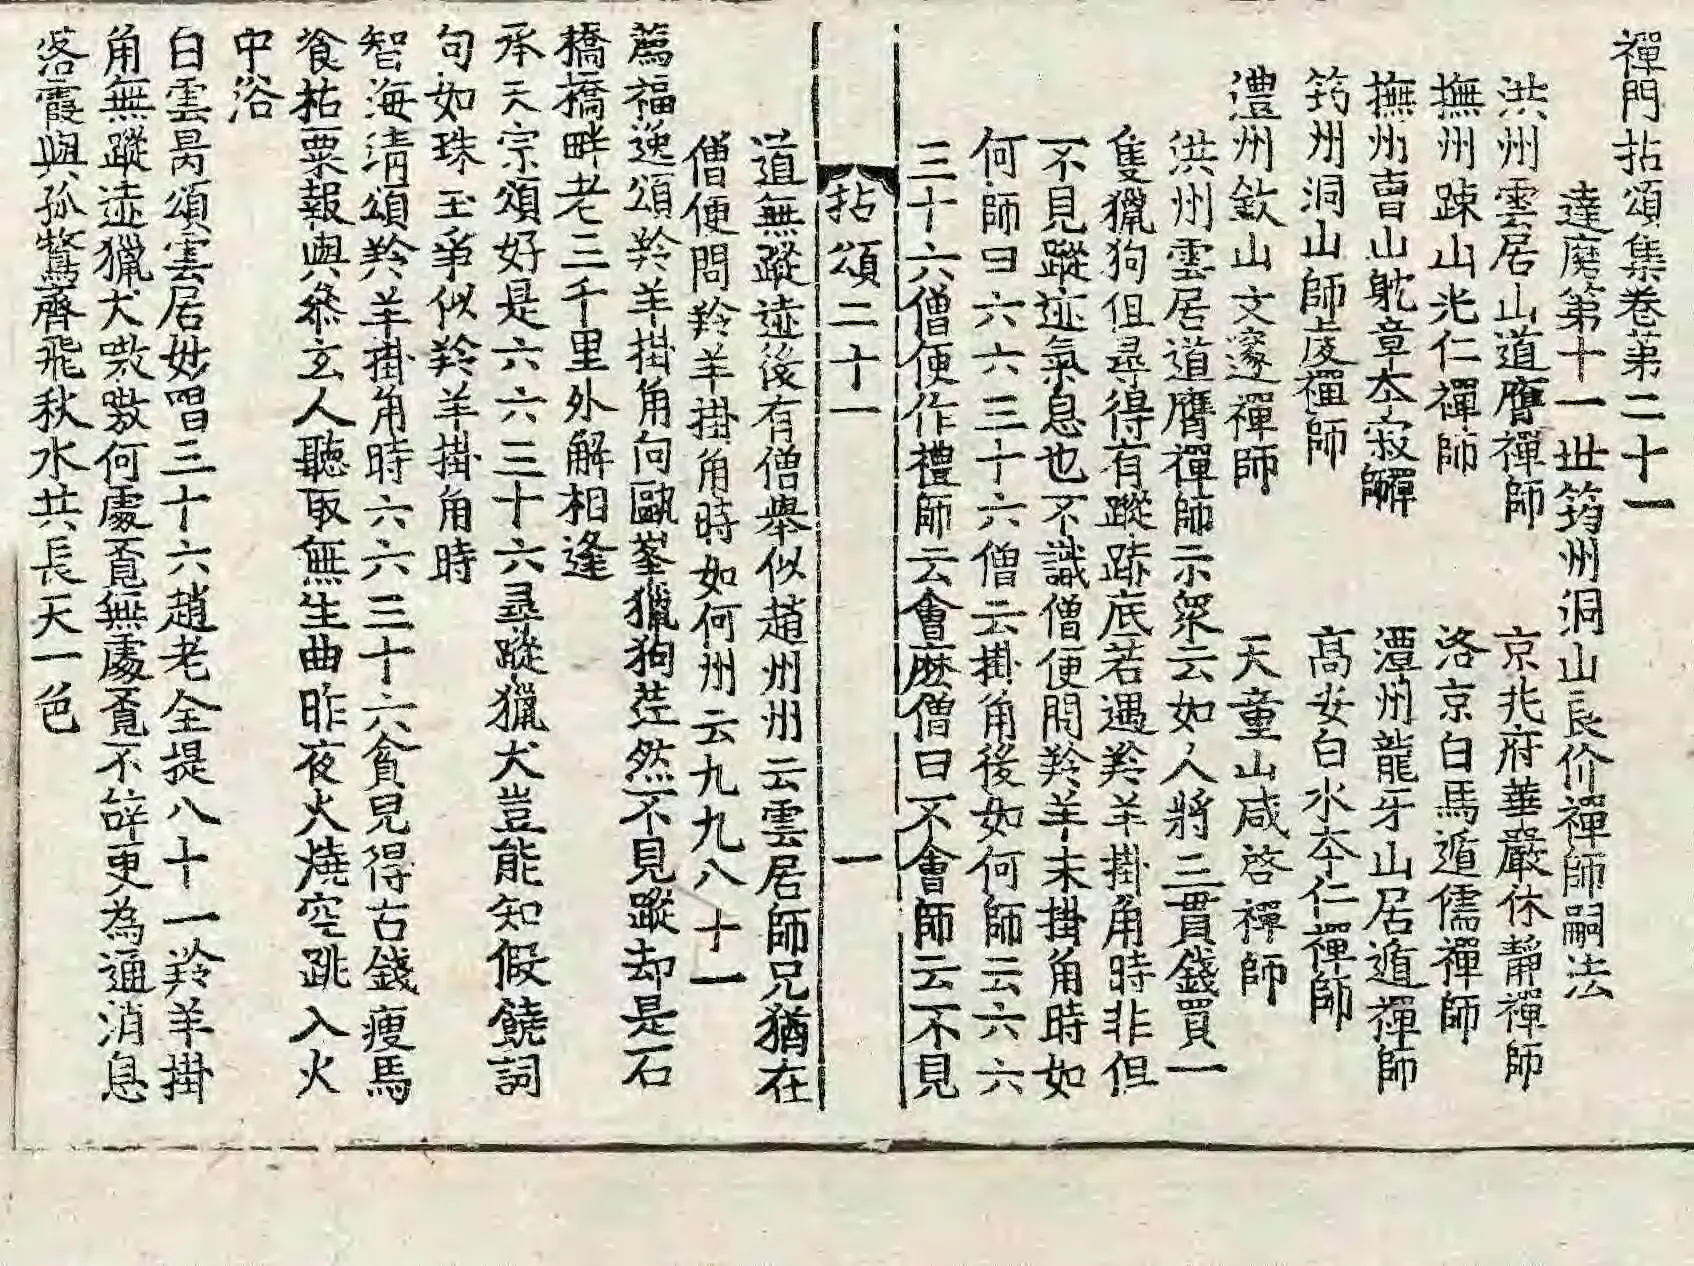 禪門拈頌集卷第二十一
達磨第十一世筠州洞山良价禪師嗣法
洪州雲居山道膺禪師　京兆府華嚴休靜禪師
撫州踈山光仁禪師　洛京白馬遁儒禪師
撫州曺山躭章本寂禪師　潭州龍牙山居遁禪師
筠州洞山師虔禪師　高安白水夲仁禪師
澧州欽山文邃禪師　天童山咸啓禪師
洪州雲居道膺禪師示衆云如人將三貫錢買一
隻獵狗但尋得有蹤跡底若遇羚羊掛角時非但
不見蹤迹氣息也不識僧便問羚羊未掛角時如
何師曰六六三十六僧云掛角後如何師云六六
三十六僧便作禮師云會麽僧曰不會師云不見
拈頌二十一　一
道無蹤迹後有僧舉似趙州州云雲居師兄猶在
僧便問羚羊掛角時如何州云九九八十一
薦福逸頌羚羊掛角向甌峯獵狗茫然不見蹤却是石
橋橋畔老三千里外解相逢
承天宗頌好是六六三十六尋蹤獵犬豈能知假饒詞
句如珠玉爭似羚羊掛角時
智海清頌羚羊掛角時六六三十六貧見得古錢瘦馬
飡枯粟報與叅玄人聽取無生曲昨夜火燒空跳入火
中浴
白雲昺頌雲居妙唱三十六趙老全提八十一羚羊掛
角無蹤迹獵犬嗷嗷何處覔無處覔不辞更為通消息
落霞與孤鶩齊飛秋水共長天一色